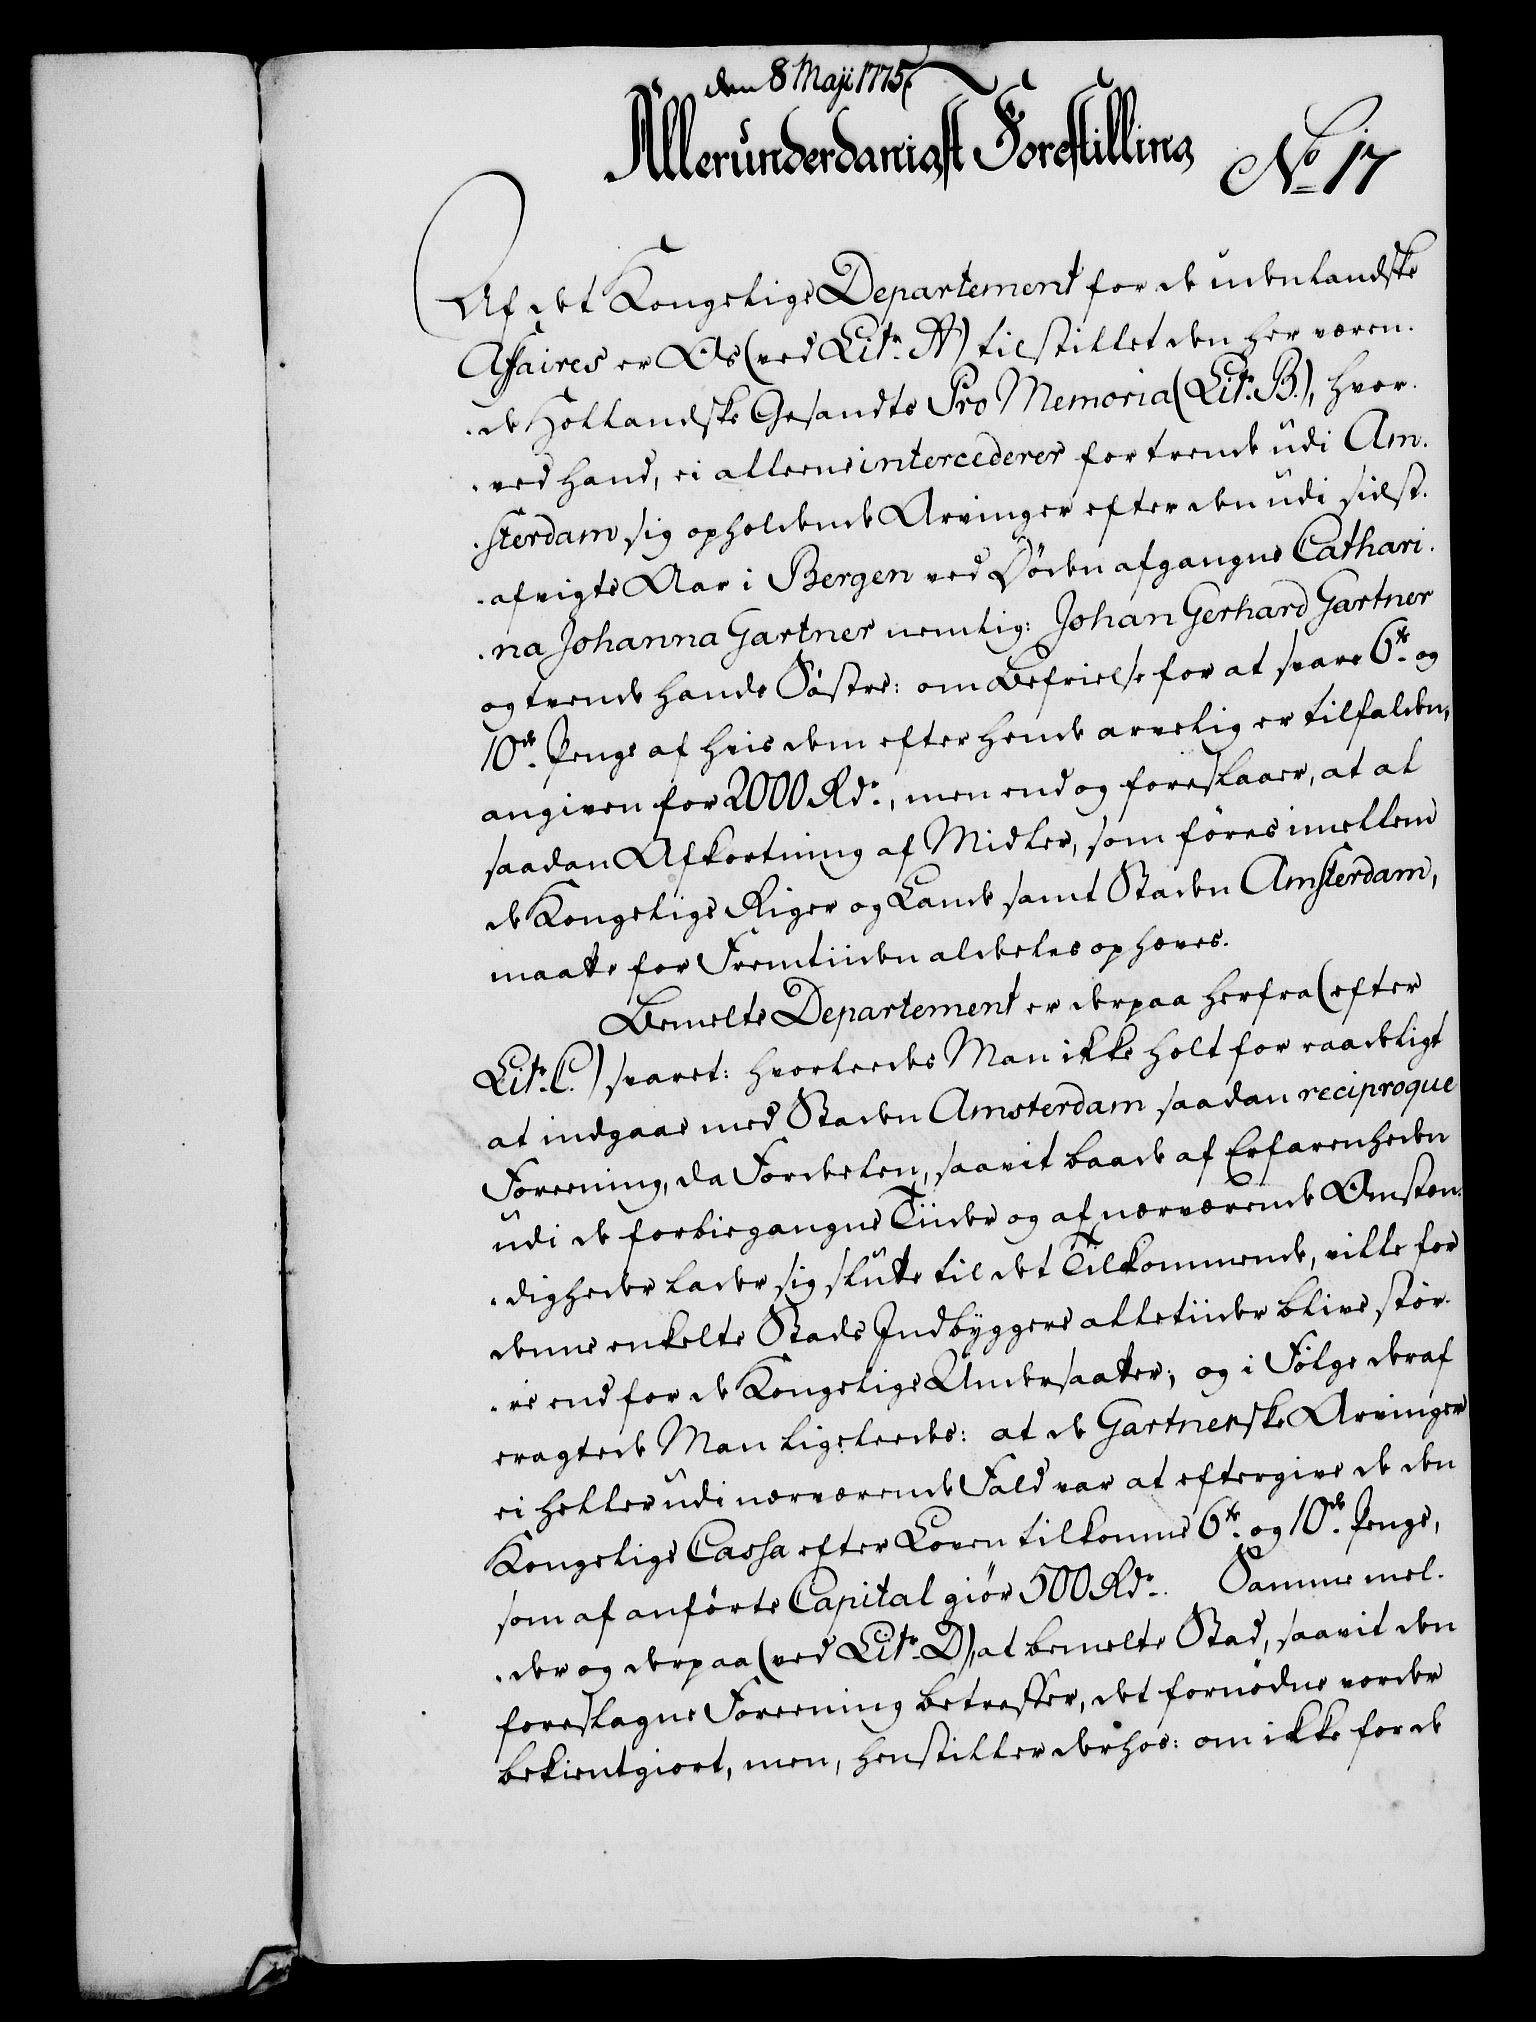 den 8 Maji 1775.
Allerunderdanigst Forestilling
No 17
Af det Kongelige Departement for de udenlandske
Affaires er Os (ved Litr. A) tilstillet den her væren-
-de Hollandske Gesandts Pro Memoria (Litr. B.), hvor-
-ved hand, ei alleene intercederer for trende udi Am-
-sterdam sig opholdende Arvinger efter den udi sidst-
-afvigte Aar i Bergen ved Døden afgangne Cathari-
-na Johanna Gartner nemlig: Johan Gerhard Gartner
og tvende hands Søstre: om Befrielse for at svare 6te og
10de Penge af hvis dem efter hende arvelig er tilfalden,
angiven for 2000 Rdr., men end og foreslaaer, at al
saadan Afkortning af Midler, som føres imellem
de Kongelige Riger og Lande samt Staden Amsterdam,
maatte for Fremtiiden aldeles ophæves.
Bemelte Departement er derpaa herfra (efter
Litr. C.) svaret: hvorleedes Man ikke holt for raadeligt
at indgaae med Staden Amsterdam saadan reciproque
Foreening, da Fordelen, saavit baade af Erfarenheden
udi de forbiegangne Tiider og af nærværende Omstæn-
-digheder lader sig slutte til det Tilkommende, ville for
denne enkelte Stads Indbyggere alletiider blive stør-
-re end for de Kongelige Undersaatter; og i Følge deraf
eragtede Man ligeleedes: at de Gartnerske Arvinger
ei heller udi nærværende Fald var at eftergive de den
Kongelige Cassa efter Loven tilkomne 6te og 10de Penge,
som af anførte Capital giør 500 Rdr. Samme mel-
-der og derpaa (ved Litr. D), at bemelte Stad, saavit den
foreslagne Foreening betreffer, det fornødne vorder
bekientgiort, men, henstiller derhos: om ikke for de